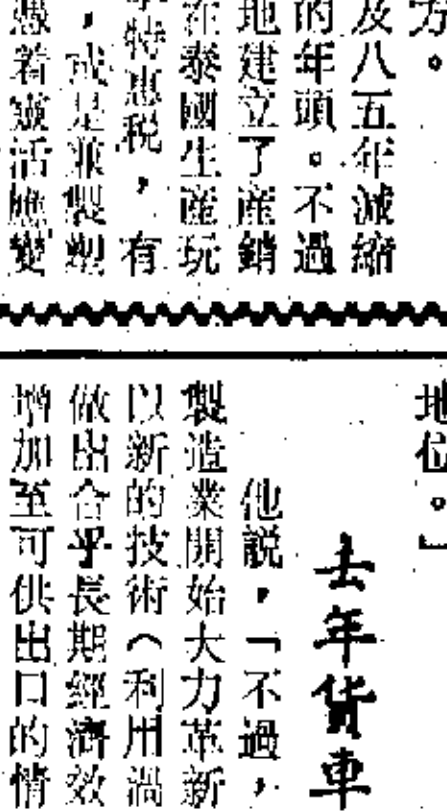 方。
及八五年減縮
的年頭。不過
地建立了產銷
在泰國生產玩
特惠稅，有
，或是兼製塑
憑着靈活應變
地位。」
去年貨車
他說，「不過，
製造業開始大力革新
以新的技術（利用渦
做出合乎長期經濟效
增加至可供出口的情